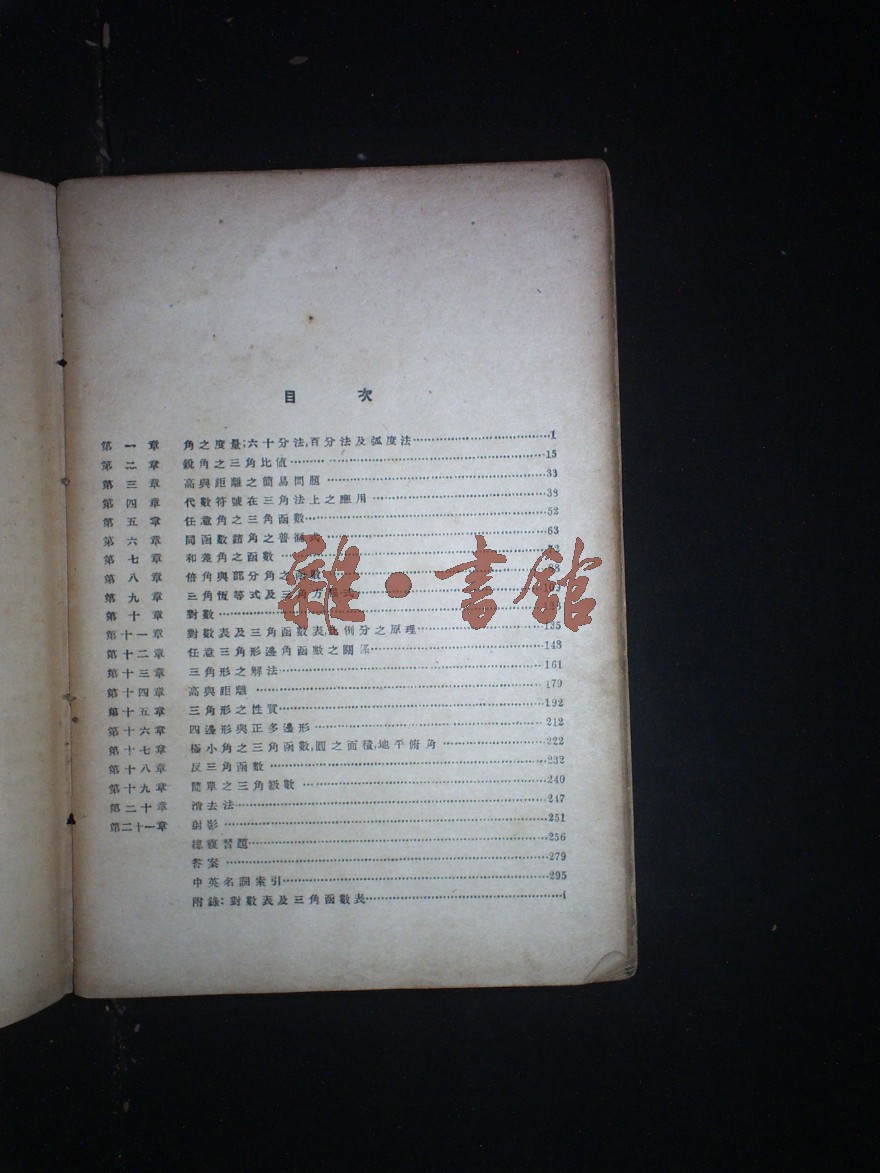 目 次
第一章 角之度量;六十分法,百分法及弧度法 1
第二章 銳角之三角比值 15
第三章 高與距離之簡易問題 33
第四章 代數符號在三角法上之應用 38
第五章 任意角之三角函數 52
第六章 同函數諸角之普 式 63
第七章 和差角之函數
第八章 倍角與部分角之函數
第九章 三角恆等式及三角方程式
第十章 對數
第十一章 對數表及三角函數表,比例分之原理 135
第十二章 任意三角形邊角函數之關係 148
第十三章 三角形之解法 161
第十四章 高與距離 179
第十五章 三角形之性質 192
第十六章 四邊形與正多邊形 212
第十七章 極小角之三角函數,圓之面積,地平俯角 222
第十八章 反三角函數 232
第十九章 簡單之三角級數 240
第二十章 消去法 247
第二十一章 射影 251
總複習題 256
答案 279
中英名詞索引 295
附錄:對數表及三角函數表 i
雜·書館